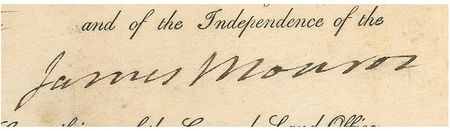 and of the Independence of the
James Monroe
Land Office